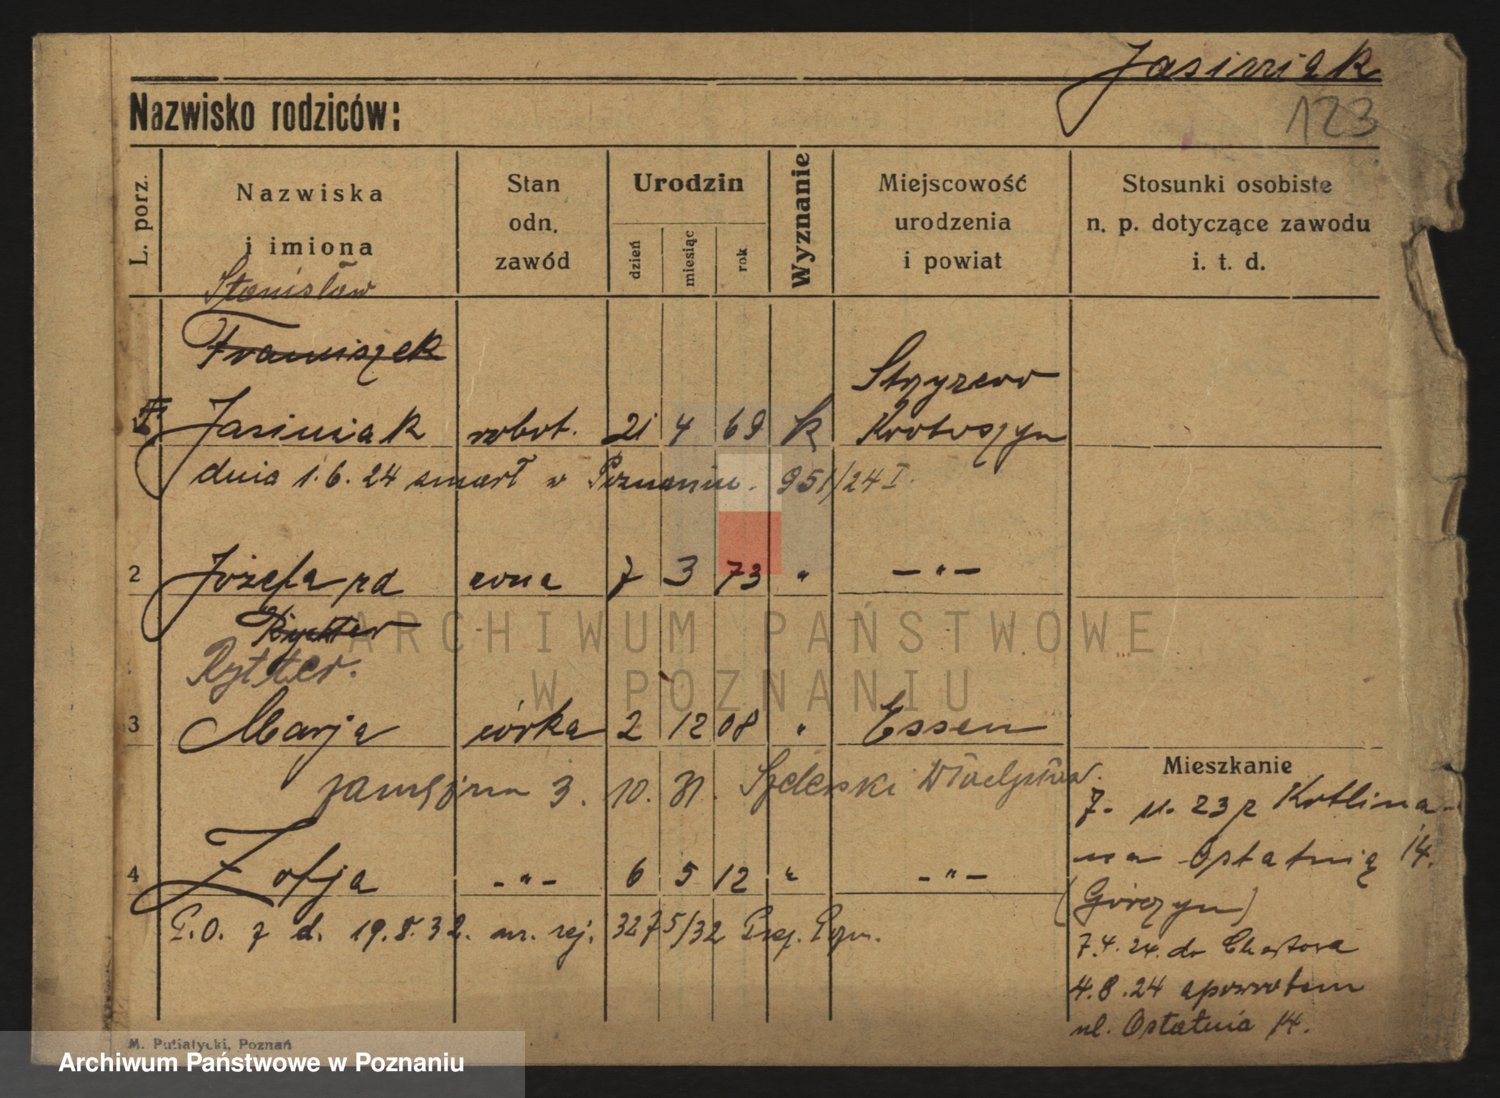 Jasiniak
Nazwisko rodziców:
123
L. porz.
Nazwiska
i imiona
Stan
odn.
zawód
Urodzin
dzień
miesiąc
rok
Wyznanie
Miejscowość
urodzenia
i powiat
Stosunki osobiste
n. p. dotyczące zawodu
i. t. d.
Stanisław
Franciszek
Stzyzewo
Jasiniak robot. 21 4 69 k Krotoszyn
dnia 1.6.24 zmarł w Poznaniu. 951/24 I.
2 Józefa zd żona 7 3 73 " — " —
Rychter
Rytter.
3 Marja córka 2 12 08 " Essen
Mieszkanie
zamężna 3. 10. 31. Szderski Władysław.
7. 11. 23 z Kotlina
na Ostatnią 14.
4 Zofja - " - 6 5 12 " - " -
(Górczyn)
P.O. z d. 19.8.32. nr. rej. 3275/32
7.4.24. do Chartowa
4.8.24 zpowrotem
ul. Ostatnia 14.
M. Putiatycki, Poznań
ARCHIWUM PAŃSTWOWE
W POZNANIU
Archiwum Państwowe w Poznaniu